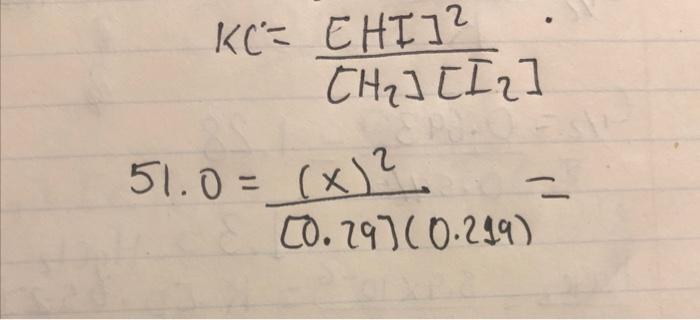 KC = [HI]²
[H₂][I₂]
51.0 = (x)² =
[0.29](0.219)